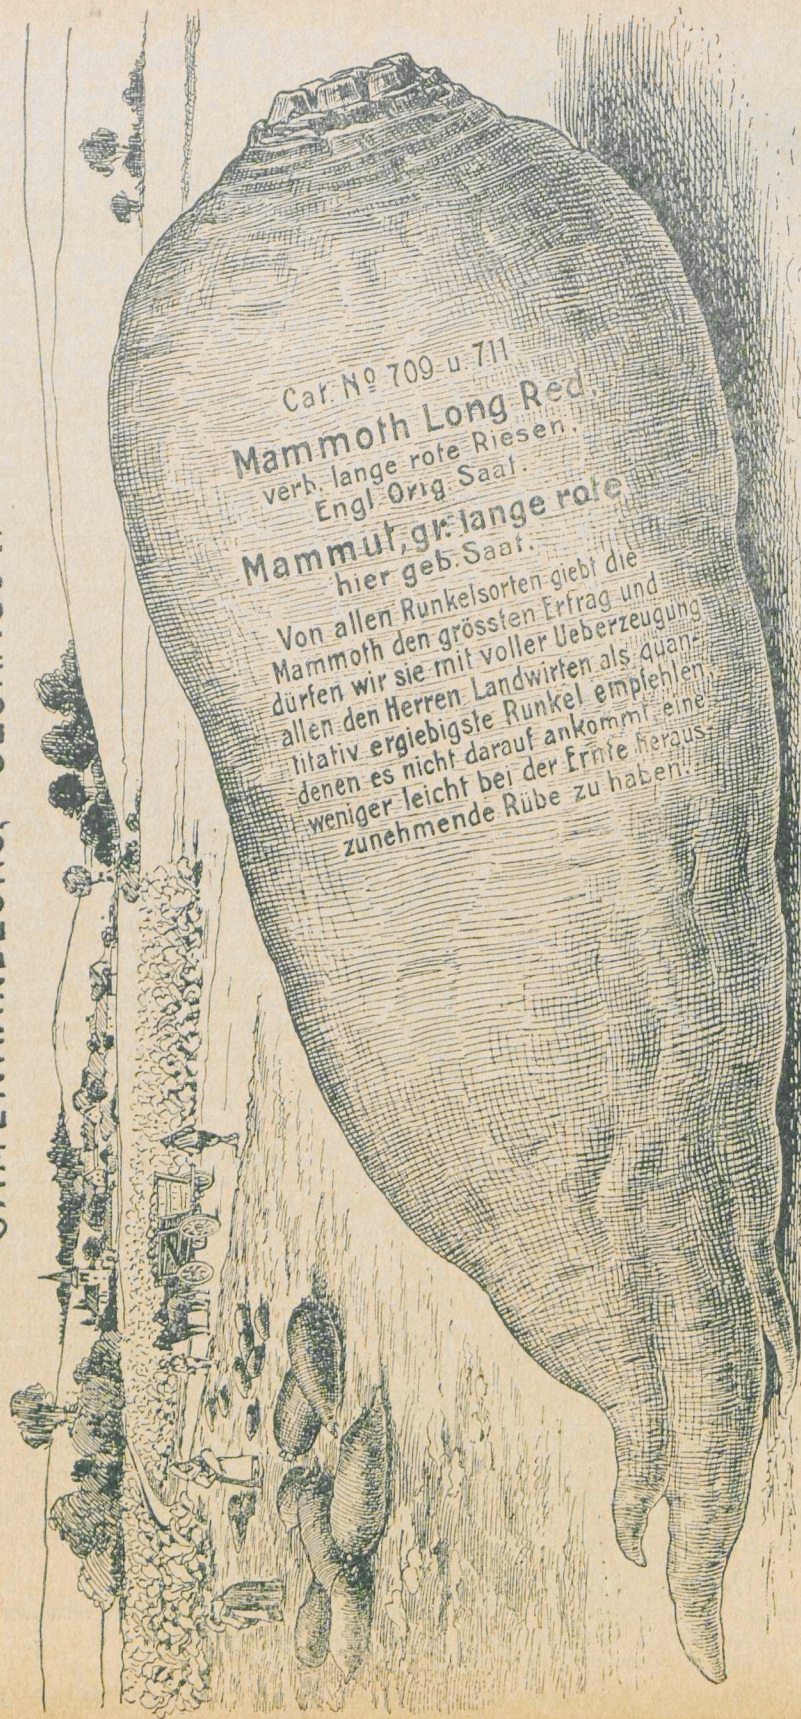 Cat. Nº 709 u. 711
Mammoth Long Red.
verb. lange rote Riesen.
Engl. Orig. Saat.
Mammut, gr. lange rote
hier geb. Saat.
Von allen Runkelsorten giebt die
Mammoth den grössten Ertrag und
dürfen wir sie mit voller Ueberzeugung
allen den Herren Landwirten als quan-
titativ ergiebigste Runkel empfehlen,
denen es nicht darauf ankommt eine
weniger leicht bei der Ernte heraus-
zunehmende Rübe zu haben.